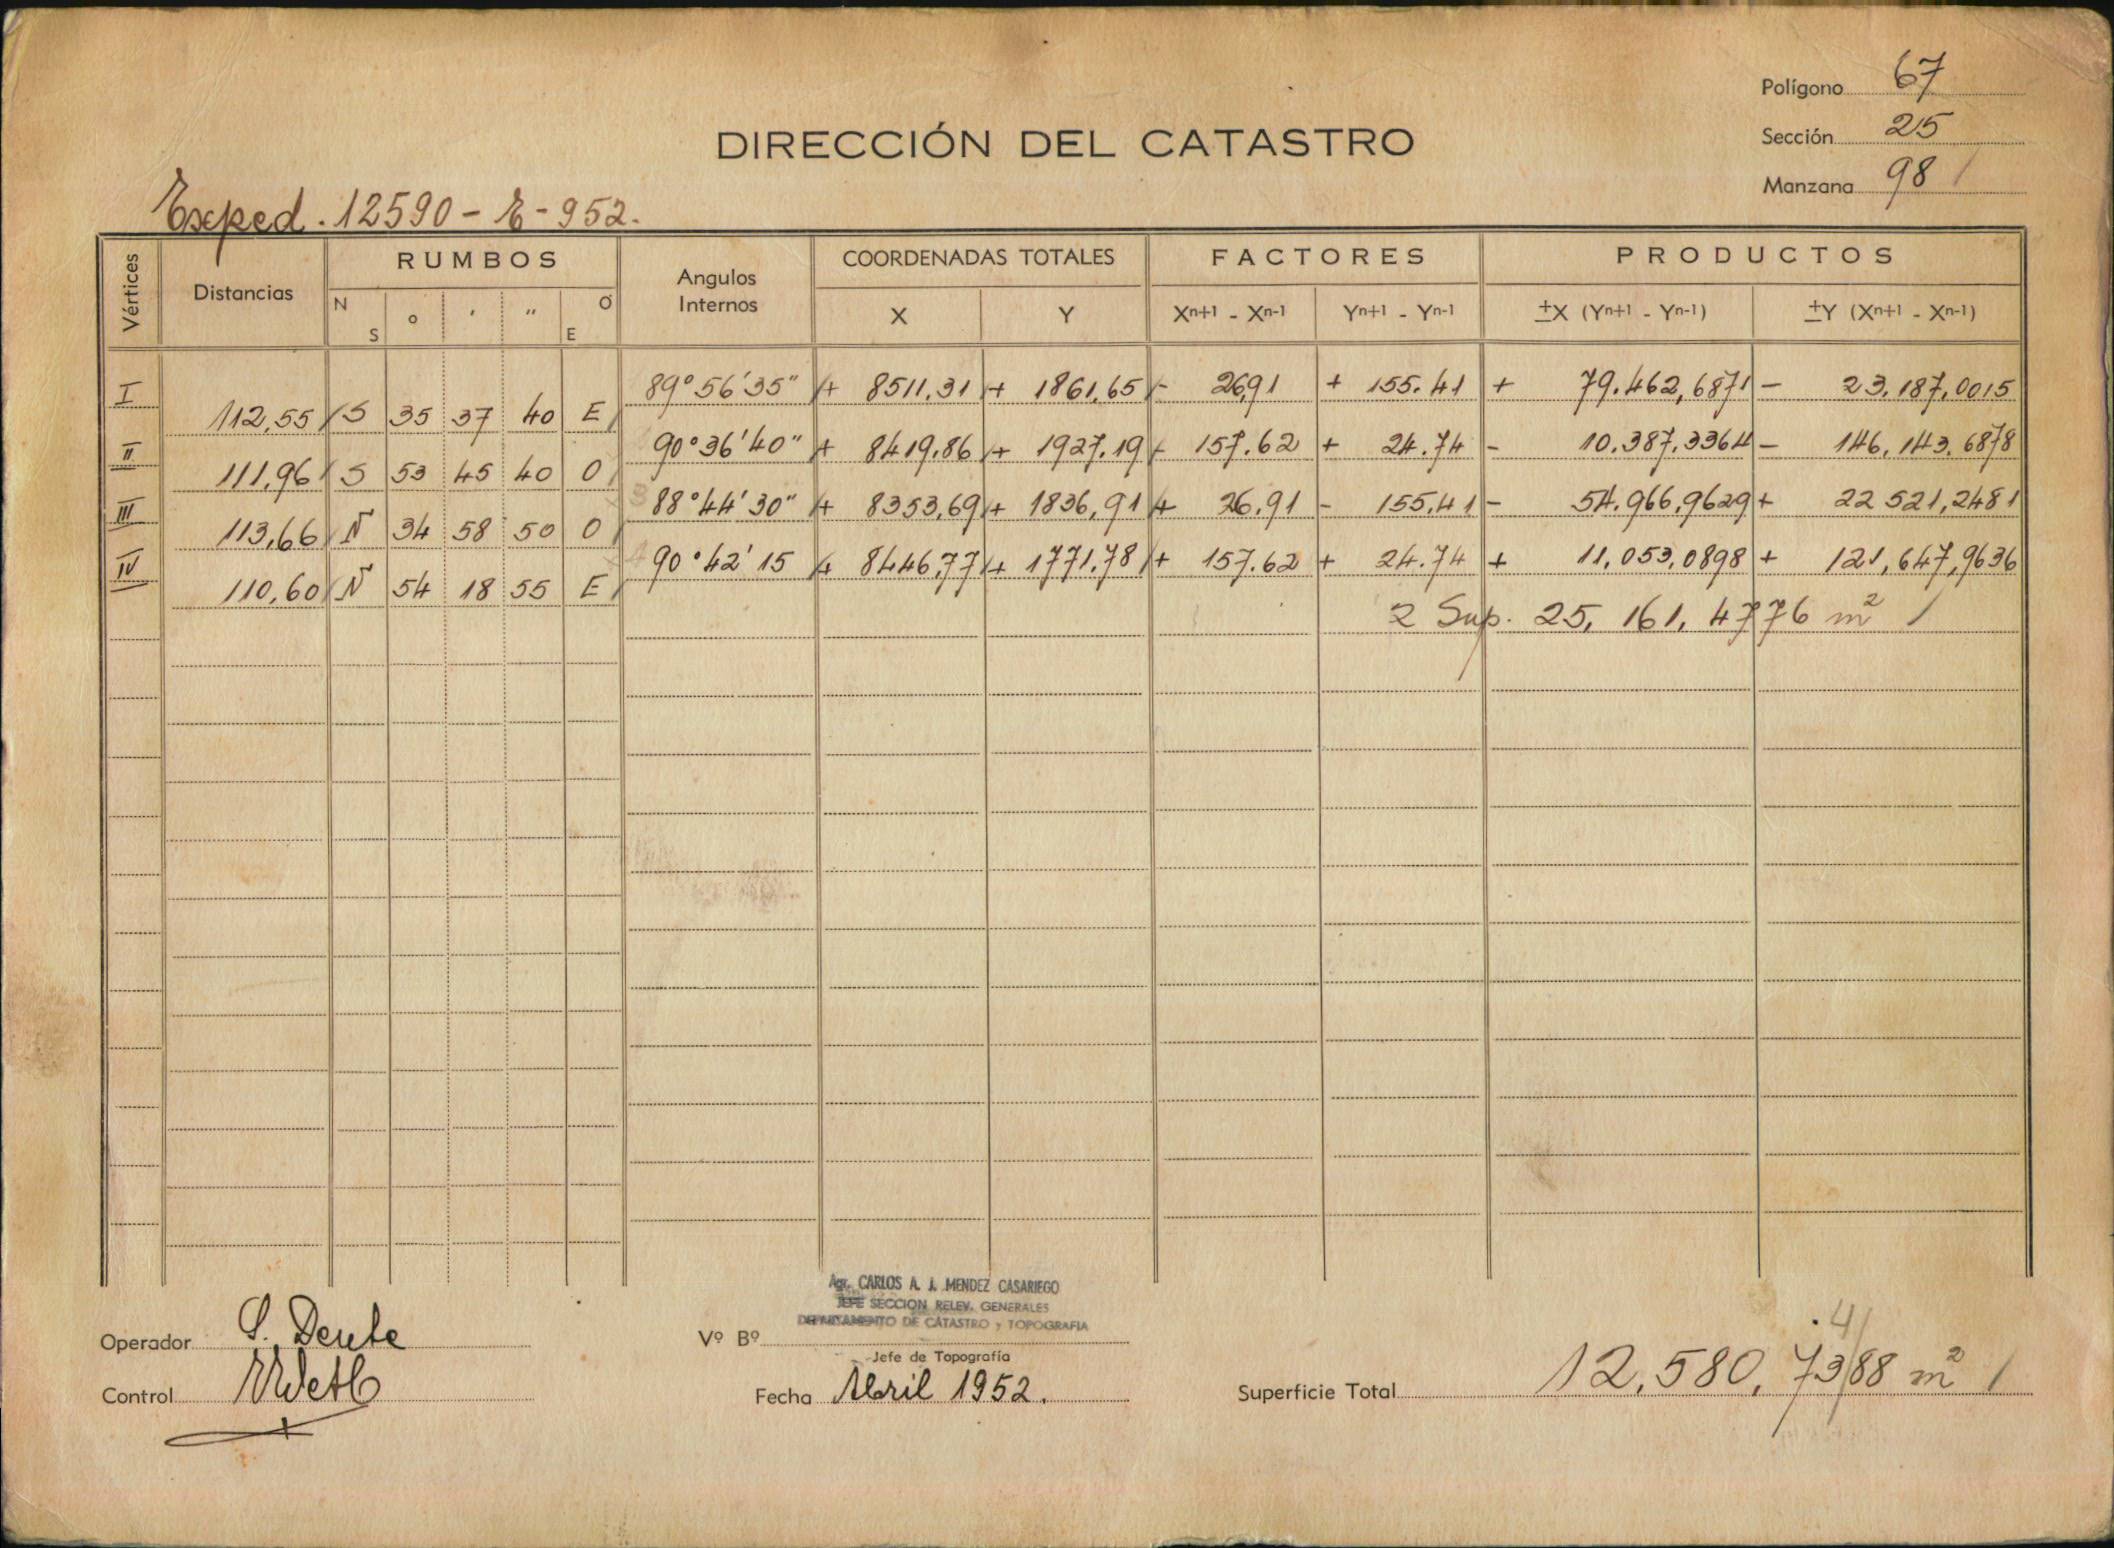 Polígono 67
DIRECCIÓN DEL CATASTRO
Sección 25
Manzana 98 /
Exped. 12590 - E - 952.
Vértices Distancias RUMBOS Angulos Internos COORDENADAS TOTALES FACTORES PRODUCTOS
N S ° ' " O E X Y Xn+1 - Xn-1 Yn+1 - Yn-1 ±X (Yn+1 - Yn-1) ±Y (Xn+1 - Xn-1)
I 89° 56' 35" + 8511,31 + 1861,65 - 26,91 + 155.41 + 79.462,6871 - 23.187,0015
112,55 S 35 37 40 E
II 90° 36' 40" + 8419,86 + 1927,19 - 157.62 + 24.74 - 10.387,3364 - 146,143,6878
111,96 S 53 45 40 O
III 88° 44' 30" + 8353,69 + 1836,91 + 26,91 - 155,41 - 54.966,9629 + 22 521,2481
113,66 N 34 58 50 O
IV 90° 42' 15 + 8446,77 + 1771,78 + 157.62 + 24.74 + 11,053,0898 + 121,647,9636
110,60 N 54 18 55 E
2 Sup. 25, 161, 4776 m² /
Agr. CARLOS A. J. MENDEZ CASARIEGO
JEFE SECCION RELEV. GENERALES
DEPARTAMENTO DE CATASTRO y TOPOGRAFIA
Operador S. Dente
Vº Bº
Jefe de Topografía
4/
Control
Fecha Abril 1952.
Superficie Total 12,580, 73/88 m² /